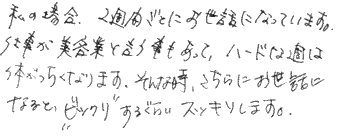 私の場合、2週間ごとにお世話になっています。
仕事が美容業と言う事もあって、ハードな週は
体がつらくなります。そんな時、こちらにお世話に
なると、"ビックリ"するぐらいスッキリします。